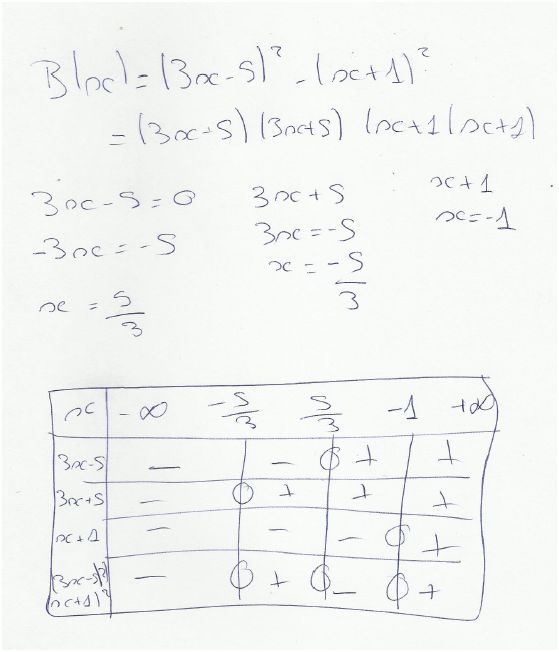 B(x) = (3x-5)² - (x+1)²
= (3x-5) (3x+5) (x+1(x+1)
3x-5=0 3x+5 x+1
-3x=-5 3x=-5 x=-1
x = 5/3 x = -5/3
x -∞ -5/3 5/3 -1 +∞
3x-5 — - 0 + +
3x+5 - 0 + + +
x+1 - - - 0 +
(3x-5)² - 0 + 0 - 0 +
x+1)²